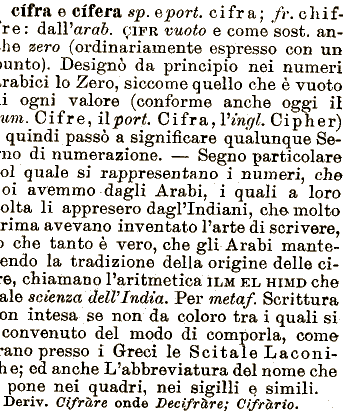 cífra e cífera sp. e port. cifra; fr. chif-
re: dall'arab. ÇIFR vuoto e come sost. an-
he zero (ordinariamente espresso con un
punto). Designò da principio nei numeri
rabici lo Zero, siccome quello che è vuoto
i ogni valore (conforme anche oggi il
um. Cifre, il port. Cifra, l'ingl. Cipher)
quindi passò a significare qualunque Se-
no di numerazione. — Segno particolare
ol quale si rappresentano i numeri, che
oi avemmo dagli Arabi, i quali a loro
olta li appresero dagl'Indiani, che molto
rima avevano inventato l'arte di scrivere,
o che tanto è vero, che gli Arabi mante-
endo la tradizione della origine delle ci-
re, chiamano l'aritmetica ILM EL HIMD che
ale scienza dell'India. Per metaf. Scrittura
on intesa se non da coloro tra i quali si
convenuto del modo di comporla, come
rano presso i Greci le Scitale Laconi-
he; ed anche L'abbreviatura del nome che
pone nei quadri, nei sigilli e simili.
Deriv. Cifràre onde Decifràre; Cifràrio.